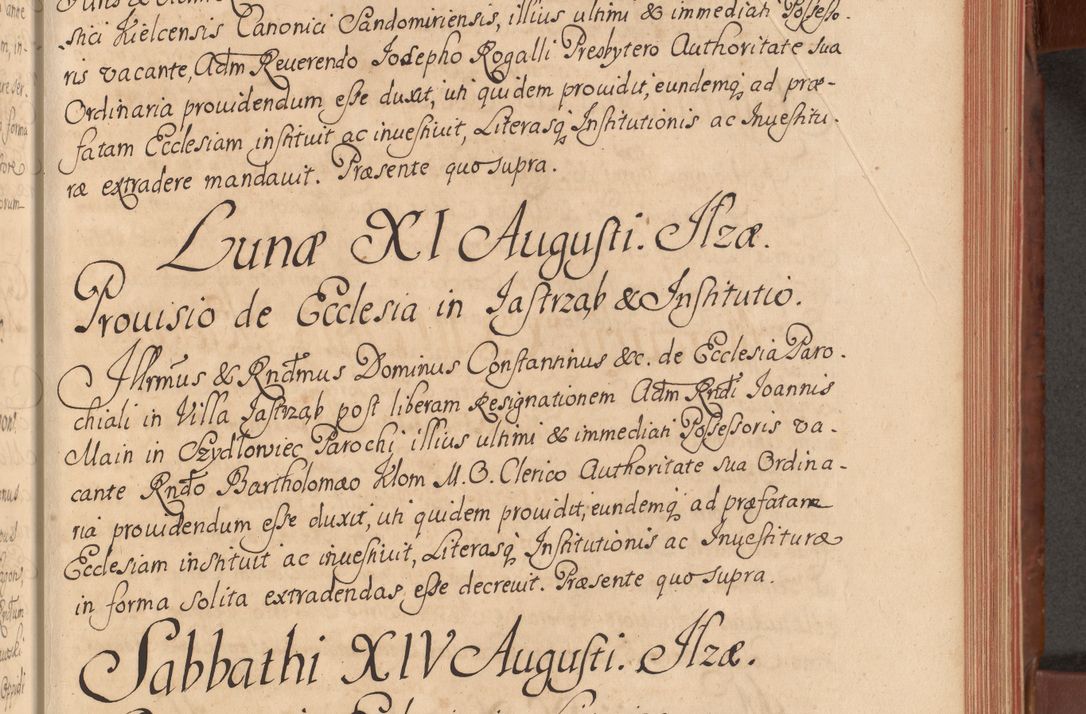 stici Kielcensis Canonici Sandomiriensis, illius ultimi & immediati Possesso-
ris vacante, Adm Reuerendo Josepho Rogalli Presbytero Authoritate sua
Ordinaria prouidendum esse duxit, uti quidem prouidit, eundemq, ad præ-
fatam Ecclesiam instituit ac inuestiuit, Literasq Institutionis ac Inuestitu-
ræ extradere mandauit. Præsente quo supra.
Lunæ XI Augusti. Ilzæ.
Prouisio de Ecclesia in Jastrząb & Institutio.
Illrmus & Rndmus Dominus Constantinus &c. de Ecclesia Paro-
chiali in Villa Jastrząb post liberam Resignationem Adm Rndi Joannis
Main in Szydłowiec Parochi illius ultimi & immediati Possessoris va-
cante Rndo Bartholomæo Klom M. O. Clerico Authoritate sua Ordina-
ria prouidendum esse duxit, uti quidem prouidit, eundemq ad præfatam
Ecclesiam instituit ac inuestiuit, Literasq Institutionis ac Inuestituræ
in forma solita extradendas esse decreuit. Præsente quo supra.
Sabbathi XIV Augusti. Ilzæ.